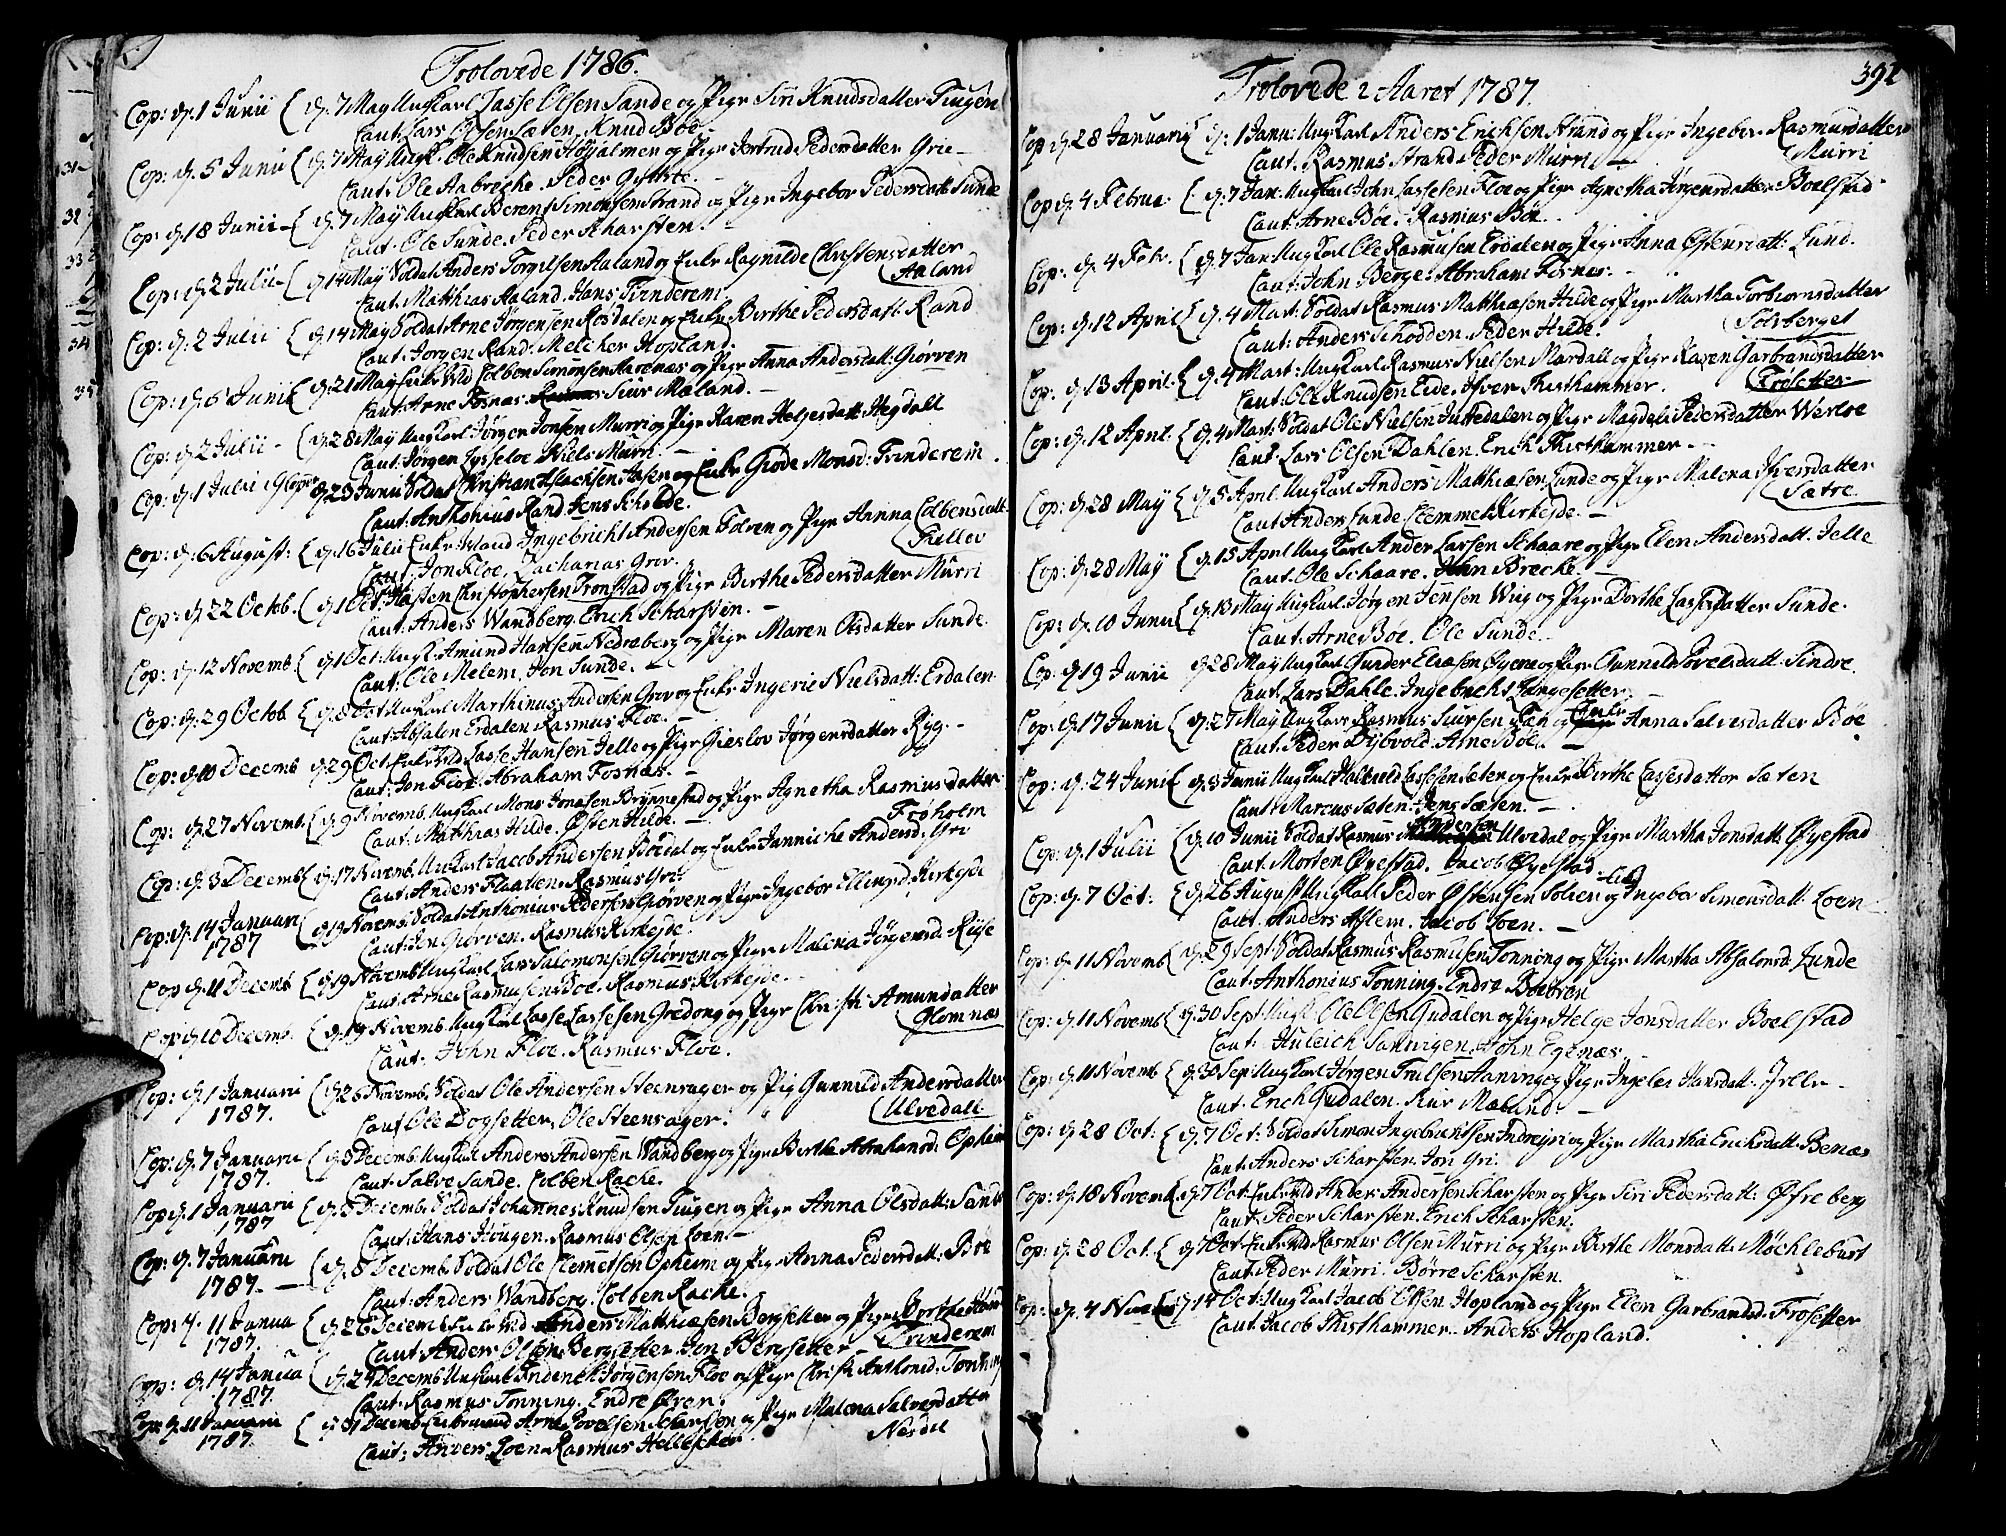 Trolovede 1786.
Cop: d. 1 Junii { d. 7 May Ungkarl Lasse Olsen Sande og Pige Siri Knudsdatter Tiugen
Caut: Lars Olsen Sæten, Knud Böe.
Cop: d. 5 Junii { d. 7 May Ungk. Ole Knudsen Hojalmen og Pige Jertrud Pedersdatter Grie
Caut: Ole Aabreche. Peder
Cop: d. 18 Junii { d. 7 May Ungkarl Berent Simonsen Strand og Pige Ingebor Pedersdatt: Sunde
Caut: Ole Sunde. Peder Scharsten.
Cop: d. 2 Julii { d. 14 May Soldat Anders Torgilsen Aaland og Enke Ragnilde Christensdatter
Aaland
Caut: Matthias Aaland. Hans Tvinderem.
Cop: d. 2 Julii { d. 14 May Soldat Arne Jørgensen Rosdalen og Enke Birthe Pedersdatt: Rand
Caut: Jørgen Rand. Melcher Hopland.
Cop: d. 6 Junii { d. 21 May Enke Md Colben Simonsen Aarenæs og Pige Anna Andersdatt: Giørven
Caut: Arne Fosnæs Siur Mæland.
Cop: d. 2 Julii { d. 28 May Ungkarl Jørgen Jonsen Murri og Pige Karen Helgesdatt: Hegdall
Caut: Jørgen Lysseloe Niels Murri.
Cop: d. 1 Julii i Gloppen d. 23 Junii Soldat Christian Isachsen Aasen og Enke Giøde Monsd: Tvinderem
Caut: Anthonius Rand Jens Scholde.
Cop: d. 6 August: { d. 16 Julii Enke Mand Ingebricht Andersen Folven og Pige Anna Colbensdatt:
Tiellev
Caut: Jon Floe, Zacharias Grov.
Cop: d. 22 Octob. { d. 1 Oct: Hosten Christophersen Tronstad og Pige Birthe Pedersdatter Murri
Caut: Anders Wandberg. Erich Scharsten.
Cop: d. 12 Novemb { d. 1 Oct: Ungk. Amund Hansen Nedreberg og Pige Maren Olsdatter Sunde.
Caut: Ole Melem, Jon Sunde.
Cop: d. 29 Octob { d. 8 Oct Ungkarl Marthinus Andersen Grov og Enke Ingerie Nielsdatt: Erdalen.
Caut: Absalon Erdalen Rasmus Floe.
Cop: d. 10 Decemb d. 29 Oct Enke Md Lasse Hansen Jelle og Pige Gieslov Jørgensdatter Ryg.
Caut: Jon Floe. Abraham Fosnæs.
Cop: d. 27 Novemb. { d. 9 Novemb. Ungkarl Mons Jonasen Brynnestad og Pige Agnetha Rasmusdatter
Frøholm
Caut: Matthias Hilde. Østen Hilde.
Cop: d. 3 Decemb { d. 17 Novemb. Ungkarl Jacob Andersen Bödal og Enke Jannicke Andersd: Gri
Caut: Anders Flaatten. Rasmus Gri.
Cop: d. 14 Januari { d. 19 Novemb. Soldat Anthonius Pedersen Giørven og Pige Ingebor Ellingsd: Kirkeyde
1787
Caut: Jon Giørven. Rasmus Kirkeyde.
Cop d. 11 Decemb { d. 19 Novemb Ungkarl Lars Salomonsen Giørven og Pige Malena Jørgensd. Riise
Caut: Arne Rasmusen Böe. Rasmus Kirkeyde.
Cop d. 10 Decemb. { d. 19 Novemb. Ungkarl Lasse Lassesen Gredong og Pige Christi: Amundatter
Glomnæs
Caut: John Floe. Rasmus Floe.
Cop: d. 1 Januarii { d. 26 Novemb. Soldat Ole Andersen Steensager og Pig Gunnild Andersdatter
1787. Ulvedall
Caut Ole Dogsetter, Ole Steensager.
Cop: d. 7 Januarii { d. 3 Decemb. Ungkarl Anders Andersen Wandberg og Pige Birthe Abrahamsd: Opheim
1787.
Caut: Salve Sande. Colben Rache.
Cop d. 1 Januarii { d. 3 Decemb. Soldat Johannes Knudsen Tiugen og Pige Anna Olsdatt: Sande
1787
Caut: Hans Hougen. Rasmus Olsen Loen.
Cop: d. 7 Januarii { d. 8 Decemb. Soldat Ole Clemetsen Opheim og Pige Anna Pedersdatt: Böe
1787.
Caut: Anders Wandberg. Colben Rache.
Cop: d. 11 Janua { d. 26 Decemb. Enke Md Anders Matthiesen Bergsetter og Pige Dorthe
1787. Tvinderem
Caut Anders Olsen Bergsetter. Jon Bergsetter
Cop: d. 14 Janua { d. 29 Decemb Ungkarl Endenich Jørgensen Floe og Pige Christi Anthonid. Tonning
1787.
Caut: Rasmus Tonning. Endre Øren.
Cop: d. 11 Januarii { d. 31 Decemb Enkemand Arne Povelsen Scharsten og Pige Malena Salvesdatter
1787. Nesdil
Caut: Anders Loen Rasmus Hellescher
391
Trolovede i Aaret 1787.
Cop d. 28 Januarii { d: 1 Janu: Ungkarl Anders Erichsen Strand og Pige Ingebor Rasmusdatter
Murri
Caut: Rasmus Strand. Peder Murri.
Cop d. 4 Februa { d. 7 Jan: Ungkarl John Lassesen Floe og Pige Agnetha Jørgensdatter Boelstad
Caut: Arne Böe. Rasmus Böe
Cop: d. 4 Febr. { d. 7 Jan Ungkarl Ole Rasmusen Erdalen og Pige Anna Østensdatt: Lund.
Caut: John Berge: Abraham Fosnæs.
Cop: d. 12 April { d. 4 Mart: Soldat Rasmus Matthiasen Hilde og Pige Martha Torbiornsdatter
Solvberget
Caut: Anders Schodden. Peder Hilde.
Cop: d. 13 April { d. 4 Mart: Ungkarl Rasmus Nielsen Mardall og Pige Karen Garbrandsdatter
Froletter
Caut: Ole Knudsen Eide. Iver Thisthammer.
Cop: d. 12 April { d. 4 Mart: Soldat Ole Nielsen Justedalen og Pige Magdeli Pedersdatter Werloe
Caut: Lars Olsen Dahlen. Erich Thisthammer
Cop: d. 28 May { d. 5 April Ungkarl Anders Matthiasen Lunde og Pige Malena Iversdatter
Sætre
Caut Anders Lunde Clemmet Kirkeyde.
Cop: d. 28 May { d. 15 April Ungkarl Ander Larsen Schaare og Pige Elen Andersdatt: Jelle
Caut: Ole Schaare. John Breche.
Cop: d. 10 Junii { d. 13 May Ungkarl Jørgen Jensen Wiig og Pige Dorthe Lassesdatter Sunde.
Caut: Arne Böe. Ole Sunde.
Cop: d 19 Junii d 28 May Ungkarl Gunder Eliæsen Øyene og Pige Gunneld Povelsdatt: Sindre
Caut: Lars Dahle. Ingebricht Langesetter.
Cop: d. 17 Junii { d. 27 May Ungkarl Rasmus Siursen Tæn og Enke Anna Salvesdatter Böe
Caut: Peder Dybvold. Arne Böe.
Cop: d: 24 Junii { d. 3 Junii Ungkarl Halvold Lassesen Sæten og Enke Birthe Lassesdatter Sæten
Caut: Marcus Sæten. Jens Sæten.
Cop: d. 1 Julii { d. 10 Junii Soldat Rasmus Andersen Ulvedal og Pige Martha Jonsdatt: Øyestad
Caut: Morten Øyestad. Jacob Øyestad.
Cop: d. 7 Oct: { d. 26 August Ungkarl Peder Østensen Solien og Ingebor Simonsdatt: Loen
Caut: Anders Aslem. Jacob Loen.
Cop: d. 11 Novemb { d. 29 Sept: Soldat Rasmus Rasmusen Tonning og Pige Martha Absalonsd: Lunde
Caut: Anthonius Tonning. Endre Bödren
Cop: d. 11 Novemb { d. 30 Sept: Ungk. Ole Olsen Gudalen og Pige Helge Jonsdatter Boelstad
Caut: Huleich Sannigen. John Egenæs.
Cop: d. 11 Novemb { d. 30 Sep: Ungkarl Jørgen Truilsen Haning og Pige Ingeler Hansdatt. Jelle
Caut: Erich Gudalen. Siur Mælund.
Cop: d. 28 Oct: { d. 7 Oct: Soldat Simon Ingebrichtsen Indreeyri og Pige Martha Erichsdatt: Benæs
Caut: Anders Scharsten. Jon Gri.
Cop: d. 18 Novemb { d. 7 Oct: Enke Md Anders Andersen Scharsten og Pige Siri Pedersdatt: Øfreberg
Caut: Peder Scharsten. Erich Scharsten.
Cop: d. 28 Oct. { d. 7 Oct: Enke Md Rasmus Olsen Murri og Pige Birthe Monsdatt: Møchlebust
Caut: Peder Murri. Børre Scharsten.
Cop: d. 4 Nov { d. 14 Oct: Ungkarl Jacob Olsen Hopland og Pige Elen Garbrandsd: Frosetter
Caut: Jacob Thisthammer. Anders Hopland.